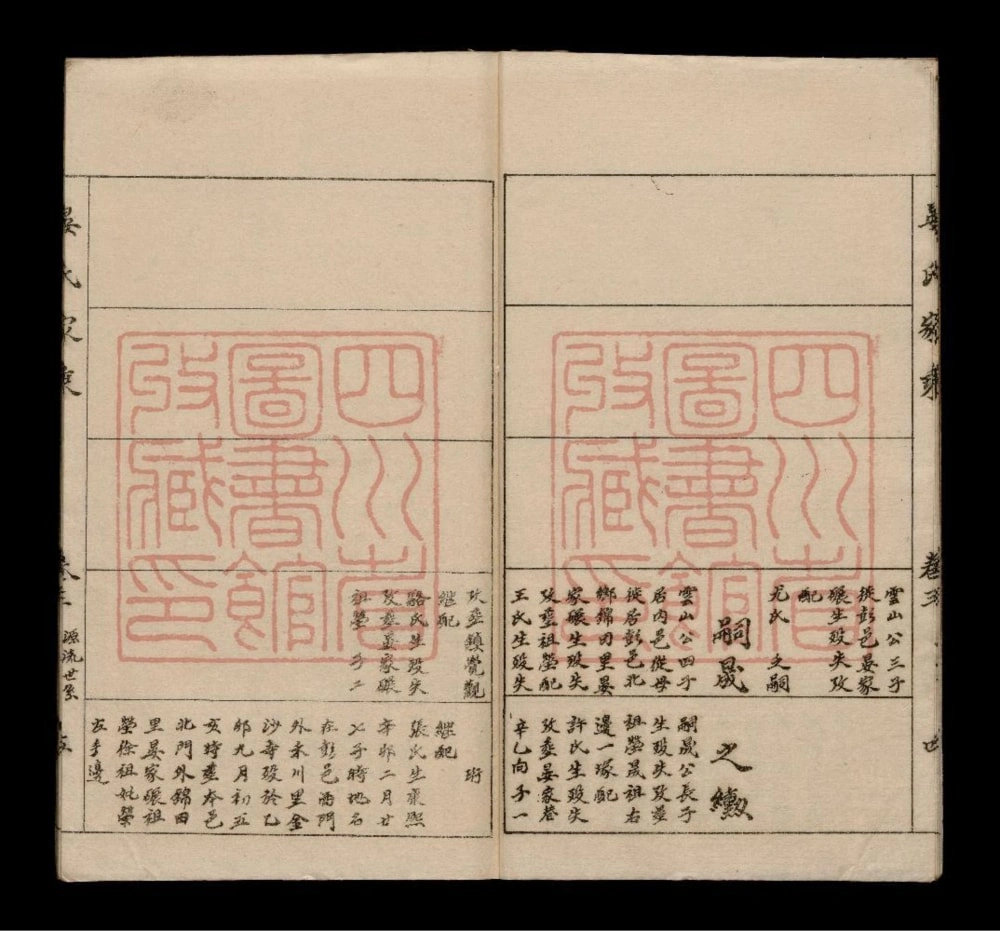 晏氏家乘
卷三
四
雲山公三子
徙彭邑晏家
碾生歿失攷
配
尤氏 之嗣
嗣晟
雲山公四子
居内邑從母
徙居彭邑北
鄉錦田里晏
家碾生歿失
攷塟祖塋配
王氏生歿失
之纘
嗣晟公長子
生歿失攷塟
祖塋晟祖右
邊一塚配
許氏生歿失
攷塟晏家巷
辛乙向子一
攷塟鎮覺觀
繼配
駱氏生歿失
攷塟晏家碾
祖塋 子二
珩
繼配
張氏生康熙
辛卯二月廿
七子時地名
在彭邑西門
外禾川里金
沙寺歿於乙
卯九月初五
亥時塟本邑
北門外錦田
里晏家碾祖
塋徐祖妣塋
左手邊
晏氏家乘
卷三
源流世系
五
四川省
圖書館
收藏印
四川省
圖書館
收藏印